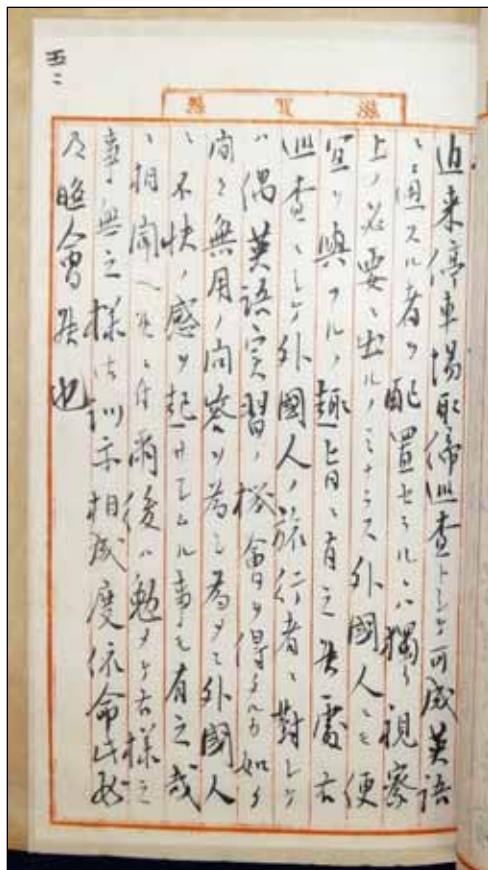 五二
滋賀縣
近来停車場取締巡査トシテ可成英語
ニ通スル者ヲ配置セラルヽハ獨リ視察
上ノ必要ニ出ルノミナラス外國人ニモ便
宜ヲ與フルノ趣旨ニ有之候處右
巡査ニシテ外國人ノ旅行者ニ對シテ
ハ偶英語実習ノ機會ヲ得タルカ如ク
間々無用ノ問答ヲ為シ為メニ外國人
ニ不快ノ感ヲ起サシムル事モ有之哉
ニ相聞ヘ候ニ付爾後ハ勉メテ右様之
事無之様御訓示相成度依命此段
及照會候也